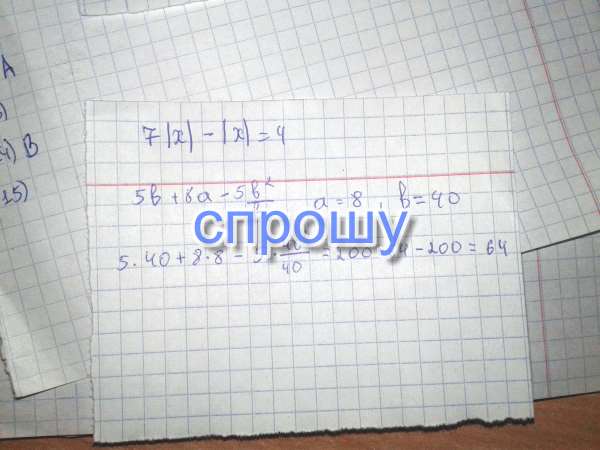 A
4) B
15)
7|x| - |x| = 4
5b + 8a - 5b²
a = 8, b = 40
спрошу
5·40 + 8·8 - 40 = 200 - 200 = 64